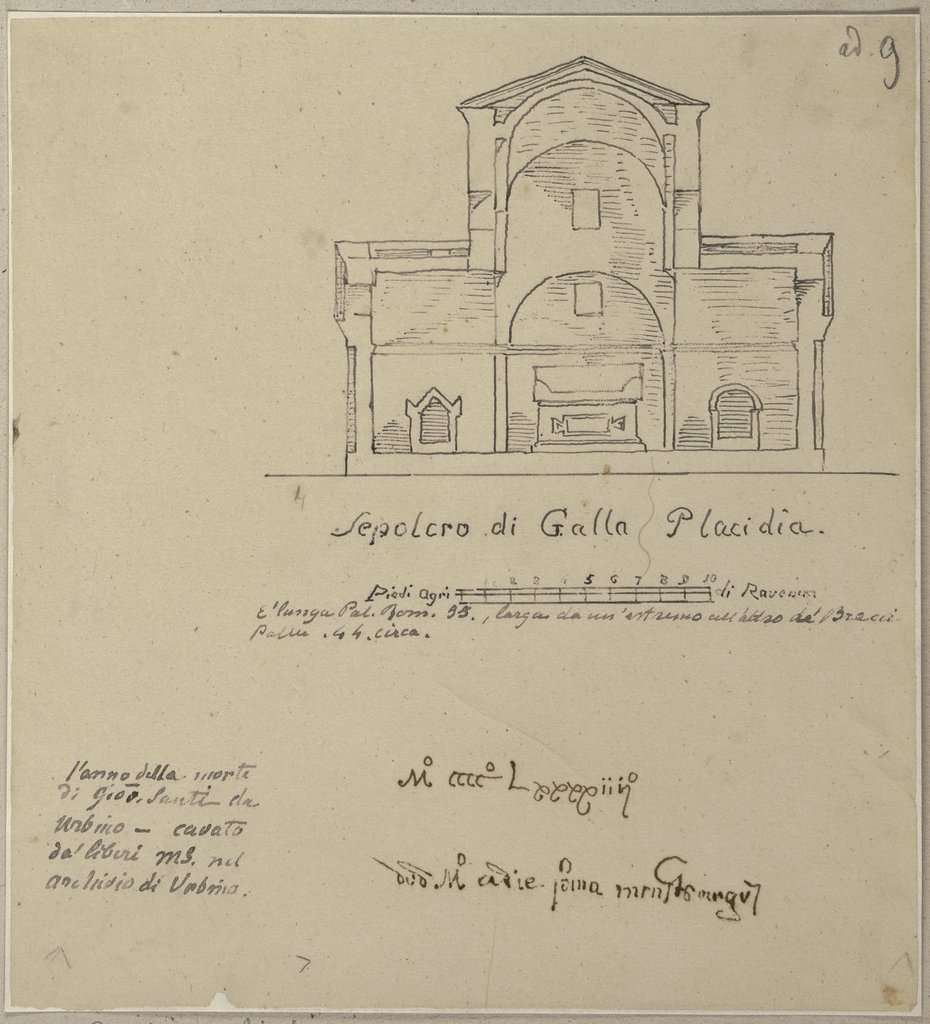 ad. 9
Sepolcro di Galla Placidia.
2 3 4 5 6 7 8 9 10
Piedi agri di Ravenna
E' lunga Pal. Rom. 55., larga da un' estremo all' altro de' Bracci
Palmi . 44. circa.
l'anno della morte
di Giov. Santi da
Urbino – cavato
da' libri MS. nel
archivio di Urbino.
Mº ccccº Lxxxxiiijº
Mº a die pima